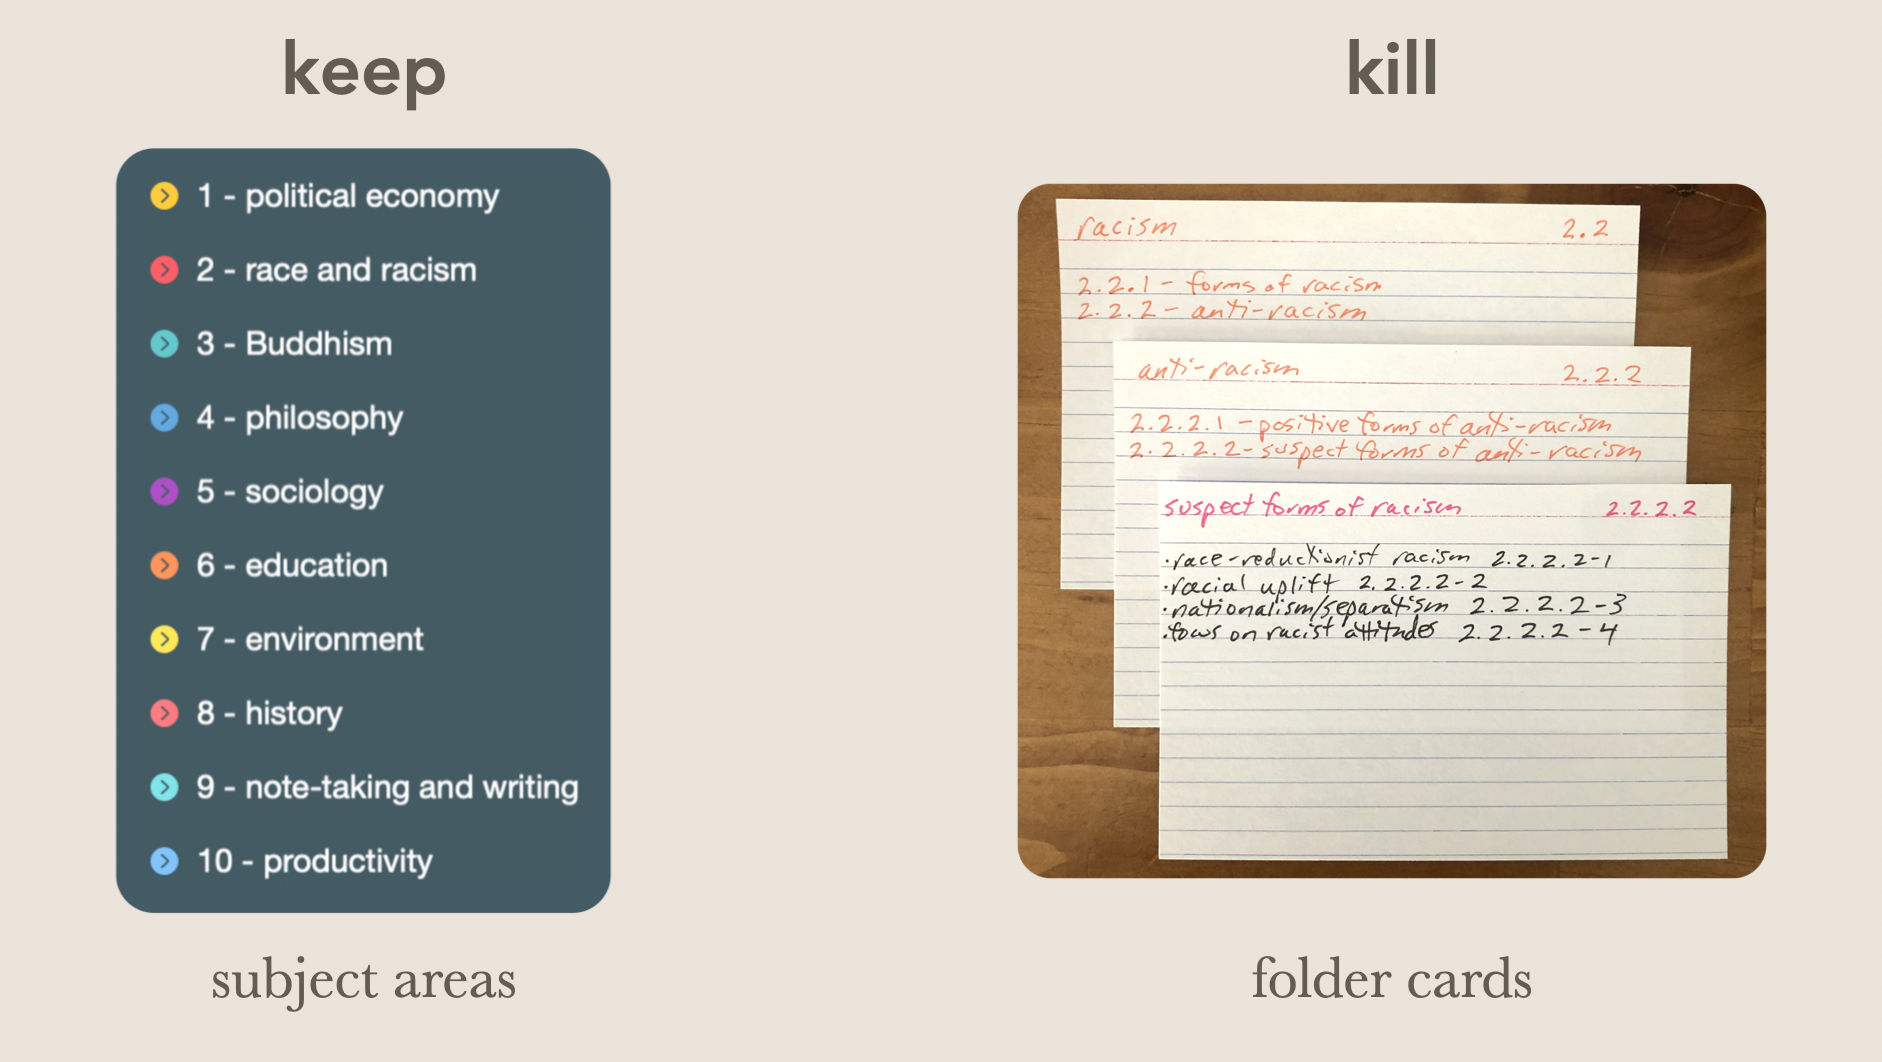 keep
1 - political economy
2 - race and racism
3 - Buddhism
4 - philosophy
5 - sociology
6 - education
7 - environment
8 - history
9 - note-taking and writing
10 - productivity
subject areas
kill
racism 2.2
2.2.1 - forms of racism
2.2.2 - anti-racism
anti-racism 2.2.2
2.2.2.1 - positive forms of anti-racism
2.2.2.2 - suspect forms of anti-racism
suspect forms of racism 2.2.2.2
·race-reductionist racism 2.2.2.2-1
·racial uplift 2.2.2.2-2
·nationalism/separatism 2.2.2.2-3
·focus on racist attitudes 2.2.2.2-4
folder cards